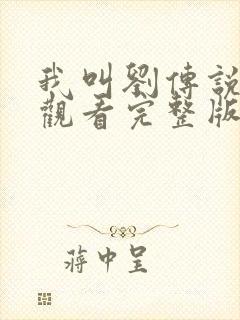 我叫劉傳說
觀看完整版
蔣中呈